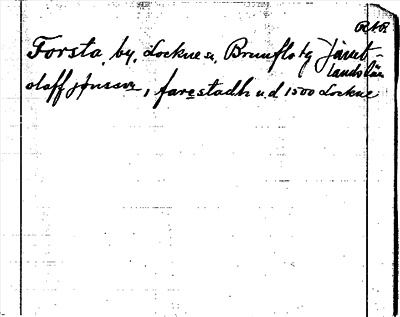 R.A.P.
Forsta, by, Lockne sn, Brunflo tg Jämt
lands län
olaff jönsson, farestadh u.d 1500 Lockne